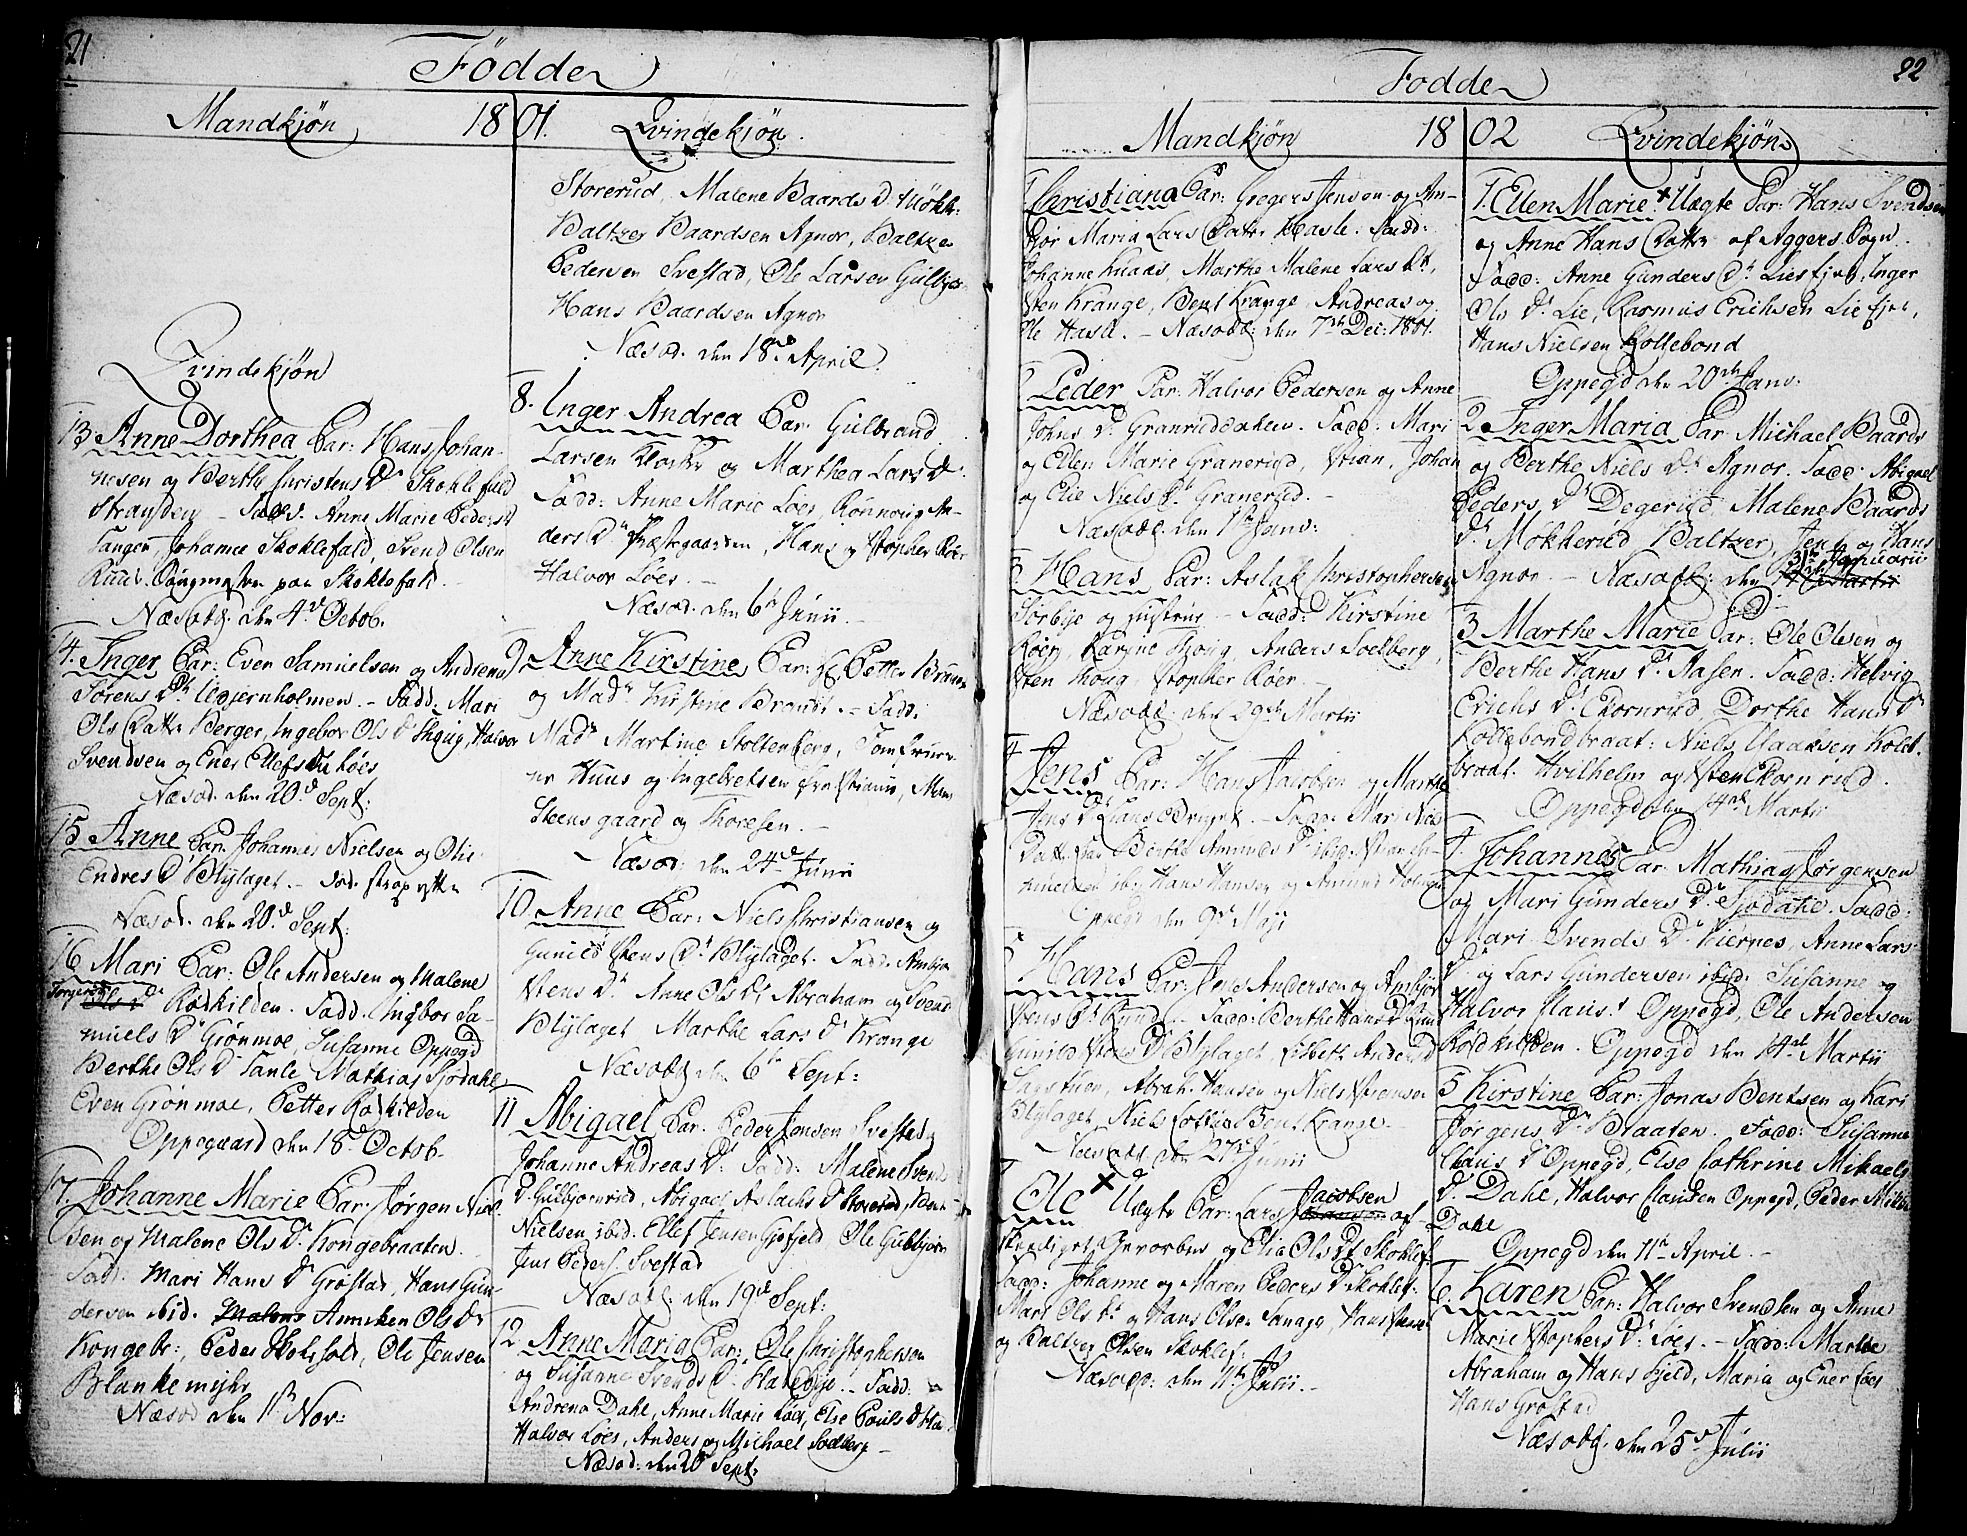 21
Födde
Mandkjøn 1801. Qvindekjøn
Storerud, Malene Baards D. Møkle-
Baltzer Baardsen Agnor, Baltzer
Pedersen Svestad, Ole Larsen Gulbjør
Hans Baardsen Agnor
Næsod. den 18de April.
8. Inger Andrea Par: Gulbrand
Larsen Klocker og Marthea Lars Dr
Fadd: Anne Marie Løes, Rønnovig An-
ders Dr Præstegaarden, Hans og Stopher Røer
Halvor Løes. -
Næsod. den 6te Junii. -
9. Anne Kirstine Par: Hr Petter
og Made Kirstine Brandt. - Fadd:
Made Martine Stoltenberg,
Huus og Ingebretsen
Steensgaard og Thoresen. -
Næsod: den 24de Junii
10. Anne Par: Niels Christiansen og
Gunild Stens Dr Blylaget. Fadd: Ambjør
Stens Dr Anne Ols Dr Abraham og Svend
Blylaget Marthe Lars Dr Krange
Næsodd den 6te Sept:
11 Abigael Par. Peder Jensen Svestad
Johanne Andreas Dr Fadd: Malene Svends
Dr Gulbjørnrud, Abigael Aslachs Dr Storerud,
Nielsen ibid. Ellef Jensen Gjøfjeld Ole Gulbjørn
Jens Peders. Svestad
Næsodd. den 19de Sept:
12. Anne Maria Par: Ole Christophersen
og Susanne Svends Dr Flatebye. - Fadd:
Andrena Dahl, Anne Marie Løes, Else Pouls Dr
Halvor Løes, Anders og Michael Solberg -
Næsod: den 20de Sept:
Qvindekjøn
13. Anne Dorthea Par: Hans Johan-
nesen og Berthe Christens Dr Skoklefald
Stranden - Fadd. Anne Marie Peders Dr
Tangen, Johanne Skoklefald, Svend Olsen
Ruud. paa Skoklefald.
Næsodd. den 4de Octob.
14. Inger Par: Even Samuelsen og Andrena
Sørens Dr Ugjernholmen. - Fadd: Mari
Ols Datter Berger, Ingebor Ols Dr Skoug, Halvor
Svendsen og Ener Ellefs Løes
Næsod. den 20de Sept:
15. Anne Par. Johannes Nielsen og Olie
Endres Dr Blylaget. -
Næsod. den 20de Sept:
16 Mari Par: Ole Andersen og Malene
Torgers Dr Rødkilden. Fadd. Ingbor Sa-
muels Dr Grønmoe, Susanne Oppegd
Berthe Ols Dr Mathias Sjødahl,
Even Grønmoe, Petter Rødkilden
Oppegaard den 18de Octob.
17. Johanne Marie Par. Jørgen Niel-
sen og Malene Ols Dr Kongebraaten.
Fadd. Mari Hans Dr Grøstad, Hans Gun-
dersen ibid. Malene Anniken Ols Dr
Kongebr:, Peder Skoklefald, Ole Jensen
Blankemyhr
Næsod den 1ste Nov:
22
Fodde
Mandkjøn 1802 Qvindekjøn
1 Christiana Par: Gregers Jensen og Am-
bjør Maria Lars Datter Hasle. Fadd:
Johanne Knaas, Marthe Malene Lars Dr,
Sten Krange, Bent Krange, Andreas og
Ole Hasle. - Næsodd: den 7de Dec: 1801.
2 Peder Par: Halvor Pedersen og Anne
Johns Dr Graneruddahlen. Fadd: Mari
og Ellen Marie Granerud, Stian, Johan
og Elie Niels Dr Granerud. -
Næsodd. den 1ste Janv:
3 Hans Par: Aslak Christophersen
Sørbye og Hustrue. - Fadd: Kirstine
Røer, Karine Skoug, Anders Solberg,
Sten Skoug, Stopher Røer. -
Næsodd. den 29de Martii
4 Jens Par: Hans Jacobsen og Marthe
Jens Dr - Fadd: Mari Niels
Datter Berthe Amunds Dr ibid.
ibid Hans Hansen og Amund
Oppegd den 9de Maji
5 Hans Par: Jens Andersen og Ambjør
Stens Dr - Fadd: Berthe Hans Dr
Gunild Stens Dr Blylaget. Lisbeth Anders Dr
Abrah. Hansen og Niels Stensen
Blylaget Niels Bent Krange. -
Næsodd den 27de Junii
Ole + Uægte Par: Lars Jacobsen af
og Elie Ols Dr Skoklef:
Fadd: Johanne og Maren Peders Dr Skoklef:
Mari Ols Dr og Hans Olsen Hans
og Baltzer Olsen Skoklef:
Næsodd: den 11te Julii. -
1. Ellen Marie + Uægte Par: Hans Svendsen
og Anne Hans Datter af Aggers Sogn.
Fadd: Anne Gunders Dr Liesfjeld, Inger
Ols Dr Lie, Rasmus Erichsen Liefjel,
Hans Nielsen Kollebond
Oppegd den 20de Janv:
2. Inger Maria Par Michael Baards
og Berthe Niels Dr Agnor. Fadd: Abigael
Peders Dr Degerud, Malene Baards
Dr Møkkerud Baltzer, Jens og Hans
Agnor. - Næsodd: den 31te Januarii
3 Marthe Marie Par: Ole Olesen og
Berthe Hans Dr Aasen. Fadd: Helvig
Erichs Dr Ekornrud, Dorthe Hans Dr
Kollebondbraat: Niels Isaaksen Koleb:
braat. Hvilhelm og Sten Ekornrud.
Oppegd den 14de Martii
4 Johannes Par. Mathias Jørgensen
og Mari Gunders Dr Sjødahl. Fadd:
Mari Svends Dr Kiernes, Anne Lars
Dr og Lars Gundersen ibid: Susanne og
Halvor Claus. Oppegd, Ole Andersen
Rødkilden. Oppegd den 14de Martii
5 Kirstine Par: Jonas Bentsen og Kari
Jørgens Dr Braaten. Fadd: Susanne
Claus Dr Oppegd, Else Cathrine Mikaels
Dr. Dahl, Halvor Clausen Oppegd, Peder Mikk
Dahl
Oppegd den 11te April. -
6. Karen Par: Halvor Svendsen og Anne
Marie Stophers Dr Løes. - Fadd: Marthe
Abraham og Hans Fjeld, Maria og Ener Løes
Hans Grøstad
Næsodd. den 25de Julii